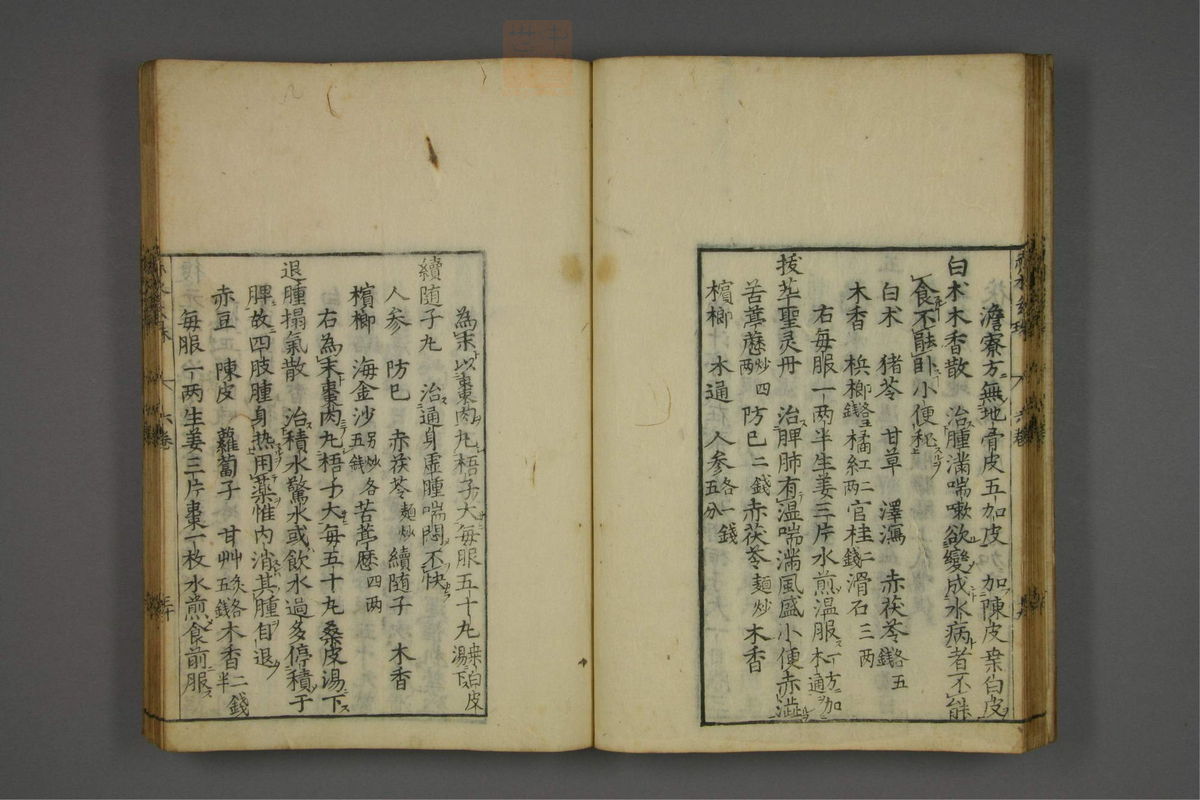 澹寮方無地骨皮五加皮 加陳皮桒白皮
白朮木香散 治腫滿喘嗽欲變成水病者不能
食不能卧小便秘
白朮 猪苓 甘草 澤瀉 赤茯苓各五錢
木香 梹榔各二錢 橘紅二兩 官桂二錢 滑石三兩
右每服一兩半生姜三片水煎温服一方加木通
拔萃聖灵丹 治脾肺有温喘滿風盛小便赤澁
苦葶藶炒四兩 防已二錢 赤茯苓麺炒 木香
檳榔 木通 人参各一錢五分
為末以棗肉丸梧子大每服五十丸桒白皮湯下
續随子丸 治通身虛腫喘悶不快
人参 防已 赤茯苓麺炒 續随子 木香
檳榔 海金沙另炒各五錢 苦葶藶四两
右為末棗肉丸梧子大每五十丸桑皮湯下
退腫搨氣散 治積水驚水或飲水過多停積于
脾故四肢腫身热用薬惟内消其腫自退
赤豆 陳皮 蘿蔔子 甘艸炙各五錢 木香二錢半
每服一两生姜三片棗一枚水煎食前服